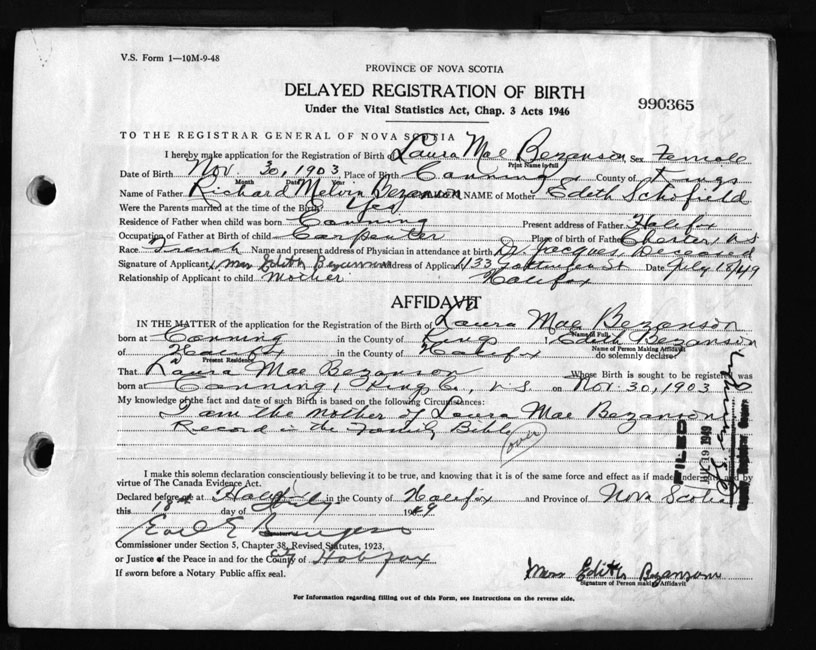 V.S. Form 1—10M-9-48
PROVINCE OF NOVA SCOTIA
DELAYED REGISTRATION OF BIRTH
Under the Vital Statistics Act, Chap. 3 Acts 1946
990365
TO THE REGISTRAR GENERAL OF NOVA SCOTIA
I hereby make application for the Registration of Birth of Laura Mae Bezanson Sex Female
Print Name in full
Date of Birth Nov. 30, 1903 Place of Birth Canning County of Kings
Month Date Year
Name of Father Richard Melvin Bezanson NAME of Mother Edith Schofield
Were the Parents married at the time of the Birth Yes
Residence of Father when child was born Canning Present address of Father Halifax
Occupation of Father at Birth of child Carpenter Place of birth of Father Chester, N.S
Race French Name and present address of Physician in attendance at birth Dr. Jacques, Deceased
Signature of Applicant Mrs Edith Bezanson Address of Applicant 133 Gottingen St Date July 18/49
Relationship of Applicant to child Mother Halifax
AFFIDAVIT
IN THE MATTER of the application for the Registration of the Birth of Laura Mae Bezanson
Name in Full
born at Canning in the County of Kings I Edith Bezanson
Name of Person Making Affidavit
of Halifax in the County of Halifax do solemnly declare
Present Residence
That Laura Mae Bezanson Whose Birth is sought to be registered was
born at Canning, King Co., N.S. on Nov. 30, 1903
My knowledge of the fact and date of such Birth is based on the following Circumstances:
I am the mother of Laura Mae Bezanson
Record in the Family Bible
(over)
FILED
19 1949
I make this solemn declaration conscientiously believing it to be true, and knowing that it is of the same force and effect as if made under oath and by
virtue of The Canada Evidence Act.
Declared before me at Halifax in the County of Halifax and Province of Nova Scotia
this 18th day of July 1949
Earl E Burgess
Commissioner under Section 5, Chapter 38, Revised Statutes, 1923,
or Justice of the Peace in and for the County of Halifax
If sworn before a Notary Public affix seal.
Mrs Edith Bezanson
Signature of Person making Affidavit
For Information regarding filling out of this Form, see Instructions on the reverse side.